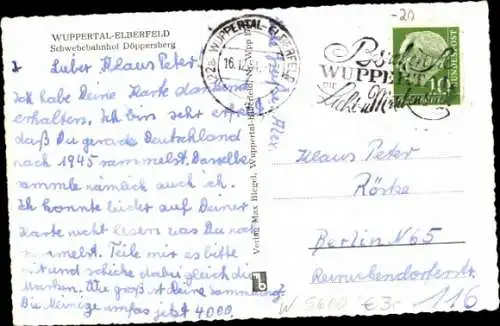 WUPPERTAL-ELBERFELD
Schwebebahnhof Döppersberg
Lieber Klaus Peter
Ich habe Deine Karte dankend
erhalten. Ich bin sehr erfreut
daß Du gerade Deutschland
nach 1945 sammelst. Dasselbe
sammle nämlich auch ich.
Ich konnte leider auf Deiner
Karte nicht lesen was Du noch
sammelst. Teile mir es bitte
mit und schicke dabei gleich die
Marken. Es grüßt Deine
Die Meinige umfas jetzt 4000.
Verlag Max Biegel, Wuppertal-Elberfeld
WUPPERTAL-ELBERFELD
16.
-20
WUPPERT
DIE
10
BUNDESPOST
Klaus Peter
Röske
Berlin N65
Reinickendorferstr.
116
W 5600 €3,-